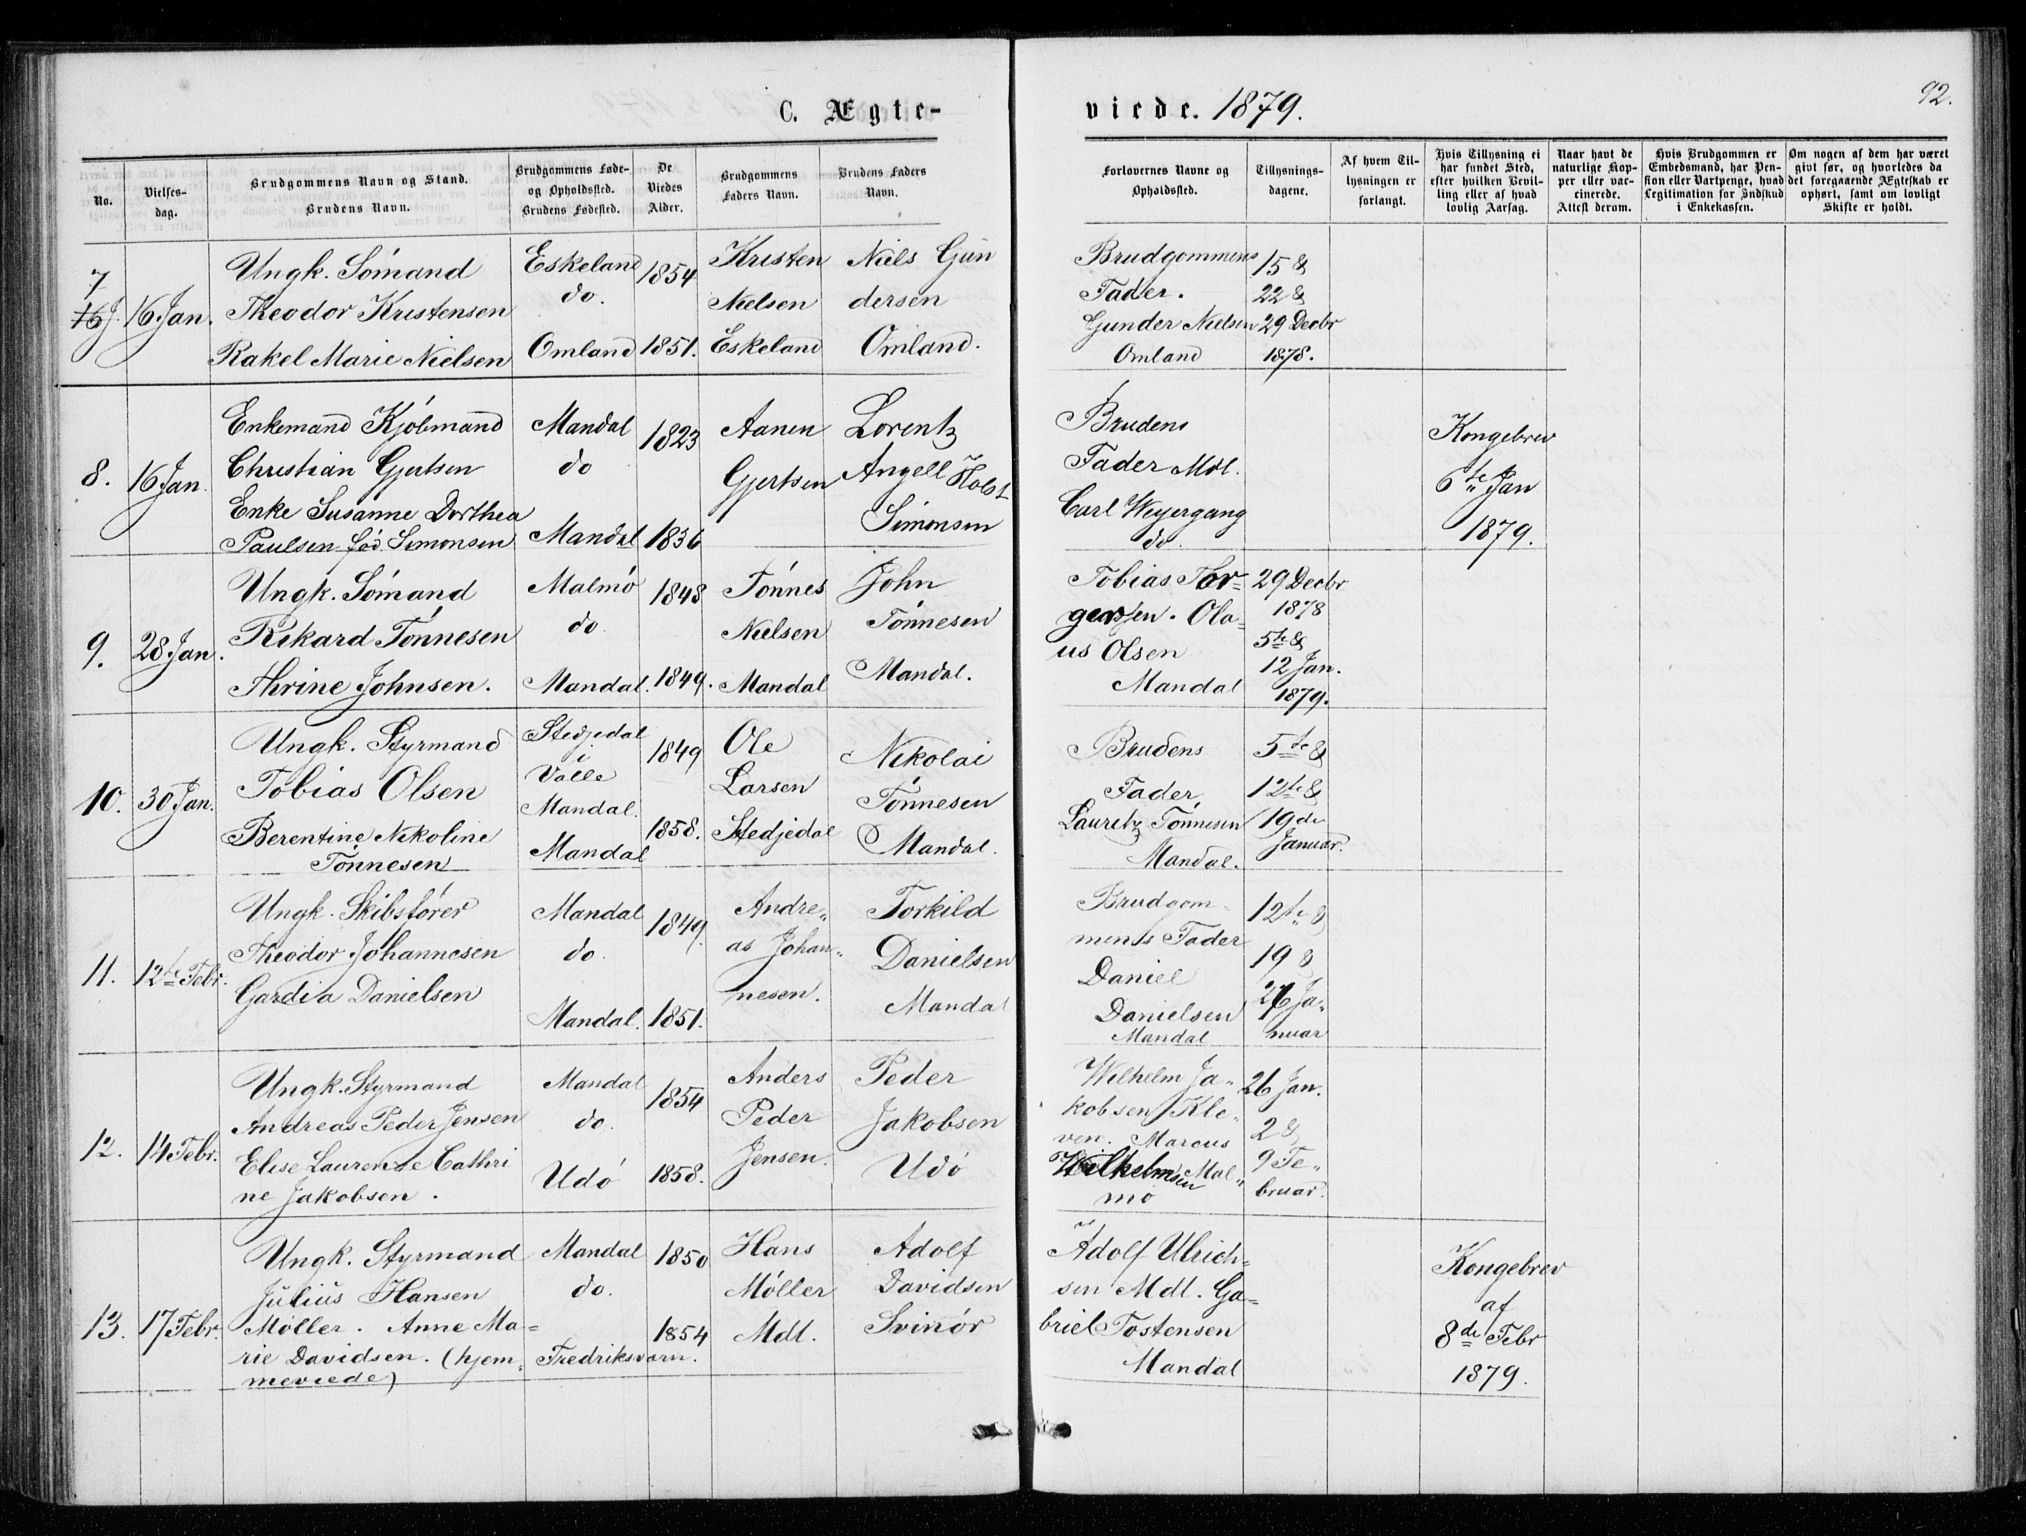 92.
C. Ægte-
viede. 1879.
No.
Vielses-
dag.
Brudgommens Navn og Stand.
Brudens Navn.
Brudgommens Føde-
og Opholdssted.
Brudens Fødested.
De
Viedes
Alder.
Brudgommens
Faders Navn.
Brudens Faders
Navn.
Forlovernes Navne og
Opholdssted.
Tillysnings-
dagene.
Af hvem Til-
lysningen er
forlangt.
Hvis Tillysning ei
har fundet Sted,
efter hvilken Bevil-
ling eller af hvad
lovlig Aarsag.
Naar havt de
naturlige Kop-
per eller vac-
cinerede.
Attest derom.
Hvis Brudgommen er
Embedsmand, har Pen-
sion eller Vartpenge, hvad
Legitimation for Indskud
i Enkekassen.
Om nogen af dem har været
givt før, og hvorledes da
det foregaaende Ægteskab er
ophørt, samt om lovligt
Skifte er holdt.
7
16 J.
16 Jan.
Ungk. Sömand
Theodor Kristensen
Rakel Marie Nielsen
Eskeland
do.
Omland
1854
1851.
Kristen
Nielsen
Eskeland
Niels Gun
dersen
Omland.
Brudgommens
Fader.
Gunder Nielsen
Omland
15 &
22 &
29 Decbr
1878.
8.
16 Jan.
Enkemand Kjöbmand
Christian Gjertsen
Enke Susanne Dorthea
Paulsen fød Simonsen
Mandal
do
Mandal
1823
1836
Aanen
Gjertsen
Lorentz
Angell Holst
Simonsen
Brudens
Fader Mdl.
Carl Weyergang
do.
Kongebrev
6te Jan
1879.
9.
28 Jan.
Ungk. Sömand
Rikard Tönnesen
Thrine Johnsen.
Malmö
do.
Mandal.
1848
1849.
Tönnes
Nielsen
Mandal
John
Tönnesen
Mandal.
Tobias Tor=
gersen. Ola=
us Olsen
Mandal
29 Decbr
1878
5te &
12 Jan.
1879.
10.
30 Jan.
Ungk. Styrmand
Tobias Olsen
Berentine Nikoline
Tönnesen
Stedjedal
i
Valle
Mandal.
Mandal
1849
1858.
Ole
Larsen
Stedjedal
Nikolai
Tönnesen
Mandal.
Brudens
Fader
Lauretz Tönnesen
Mandal.
5te &
12te &
19de
Januar.
11.
12te Febr.
Ungk. Skibsförer
Theodor Johannesen
Gardia Danielsen
Mandal
do.
Mandal.
1849.
1851.
Andre„
as Johan„
nesen.
Torkild
Danielsen
Mandal
Brudgom
mens Fader
Daniel
Danielsen
Mandal
12te &
19 &
26 Ja„
nuar
12.
14 Febr.
Ungk. Styrmand
Andreas Peder Jensen
Elise Laurentse Cathri
ne Jakobsen.
Mandal
do.
Udö
1854
1858.
Anders
Peder
Jensen.
Peder
Jakobsen
Udö
Wilhelm Ja„
kobsen Kle„
ven. Marcus
Wilhelmsen Mal„
mö
26 Jan.
2 &
9 Fe„
bruar.
13.
17 Febr.
Ungk. Styrmand
Julius Hansen
Møller. Anne Ma=
rie Davidsen. (hjem„
meviede)
Mandal
do.
Fredriksværn.
1850
1854
Hans
Møller
Mdl.
Adolf
Davidsen
Svinör
Adolf Ulrich=
sen Mdl. Ga=
briel Tostensen
Mandal
Kongebrev
af
8de Febr
1879.